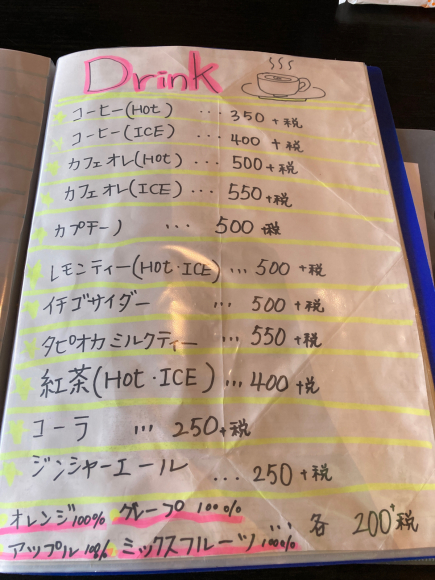 Drink
コーヒー(Hot) ... 350+税
コーヒー(ICE) ... 400+税
カフェオレ(Hot) ... 500+税
カフェオレ(ICE) ... 550+税
カプチーノ ... 500+税
レモンティー(HOT・ICE) ... 500+税
イチゴサイダー ... 500+税
タピオカミルクティー ... 550+税
紅茶(HOT・ICE) ... 400+税
コーラ ... 250+税
ジンジャーエール ... 250+税
オレンジ100% グレープ100%
アップル100% ミックスフルーツ100% ... 各200+税